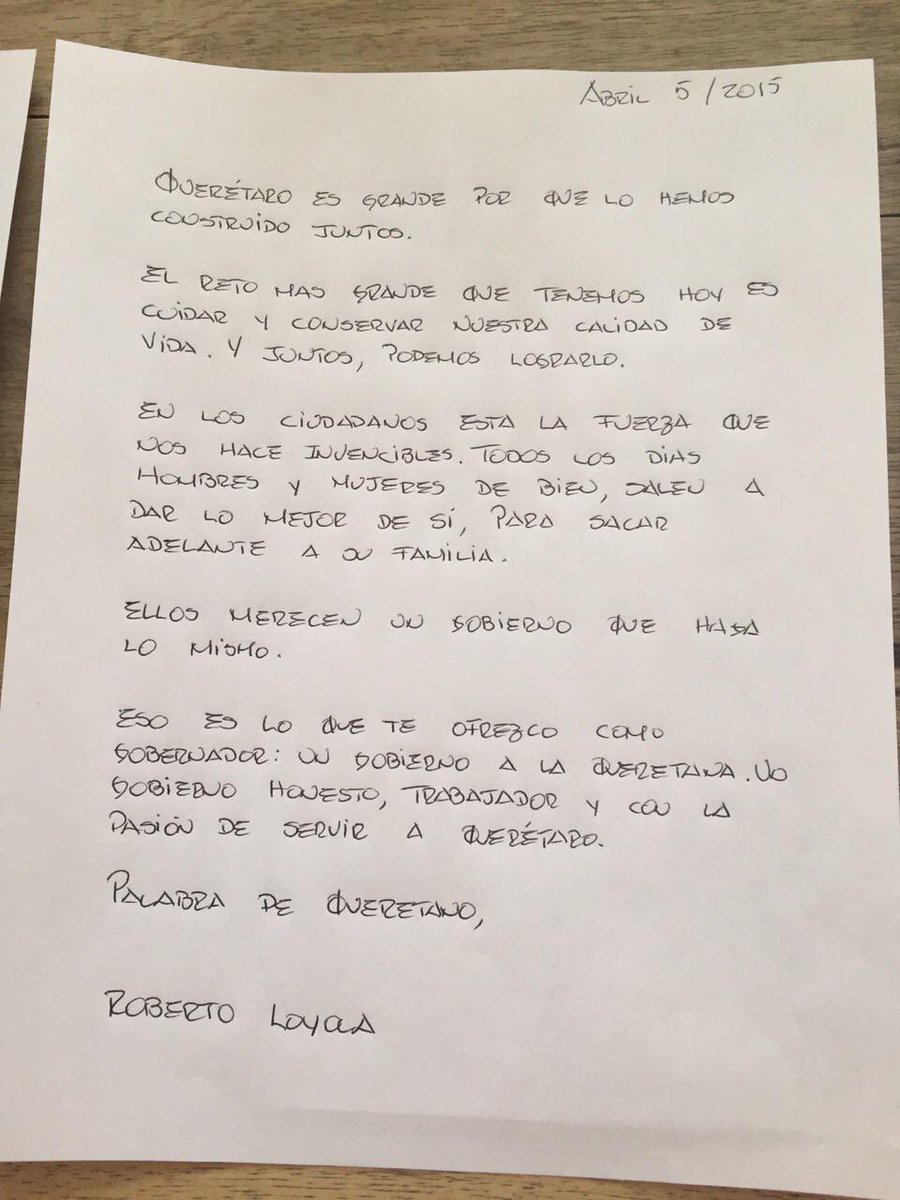 ABRIL 5/2015
QUERÉTARO ES GRANDE POR QUE LO HEMOS
CONSTRUIDO JUNTOS.
EL RETO MAS GRANDE QUE TENEMOS HOY ES
CUIDAR Y CONSERVAR NUESTRA CALIDAD DE
VIDA. Y JUNTOS, PODEMOS LOGRARLO.
EN LOS CIUDADANOS ESTA LA FUERZA QUE
NOS HACE INVENCIBLES. TODOS LOS DIAS
HOMBRES Y MUJERES DE BIEN, SALEN A
DAR LO MEJOR DE SÍ, PARA SACAR
ADELANTE A SU FAMILIA.
ELLOS MERECEN UN GOBIERNO QUE HAGA
LO MISMO.
ESO ES LO QUE TE OFREZCO COMO
GOBERNADOR: UN GOBIERNO A LA QUERETANA. UN
GOBIERNO HONESTO, TRABAJADOR Y CON LA
PASIÓN DE SERVIR A QUERÉTARO.
PALABRA DE QUERETANO,
ROBERTO LOYOLA